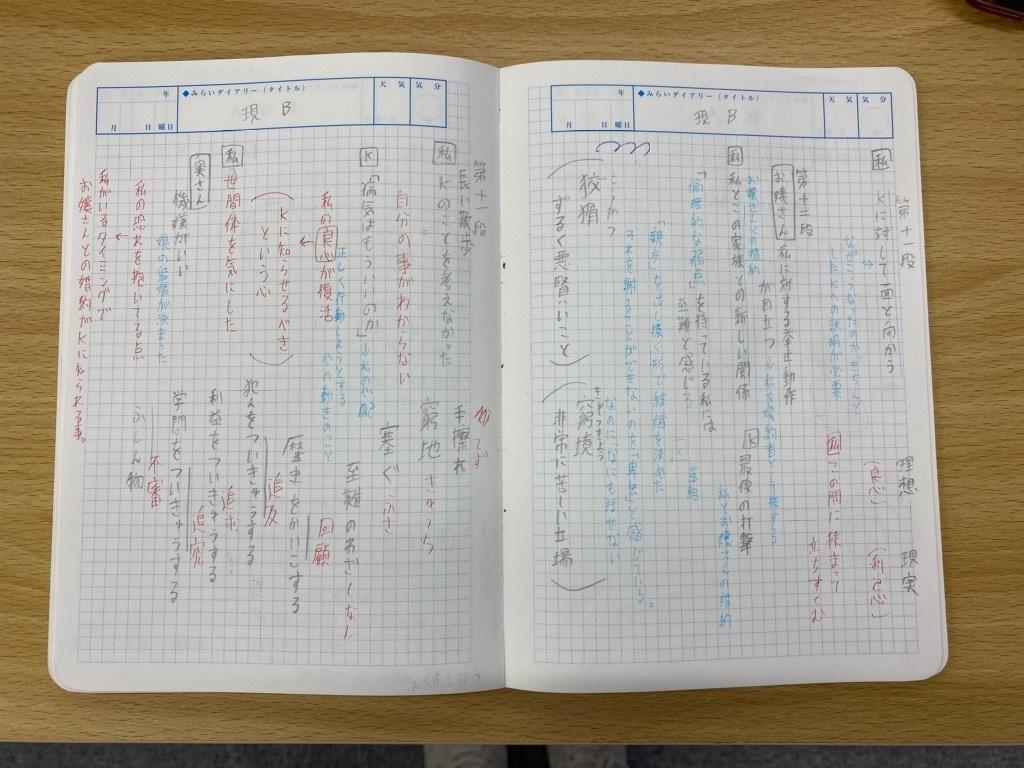 年
◆みらいダイアリー（タイトル）
天気
気分
月 日 曜日
現 B
第十段
長い散歩
私 Kのことを考えなかった
自分の事がわからない
K 「病気はもういいのか」→私の心配
正しく行動しようとする
心の動きのこと
私の良心が復活
←
（Kに知らせるべき
という心）
私 世間体を気にした
奥さん
機嫌がいい
娘の結婚が決まった
私の恐れを抱いてる点
←
私がいるタイミングで
お嬢さんとの婚約がKに知られる事。
手擦れ
てずれ
窮地 きゅうち
塞ぐ ふさ
至難のわざ
歴史をかいこする
回顧
犯人をついきゅうする
追及
利益をついきゅうする
追求
学問をついきゅうする
追究
ふしん物
不審
年
◆みらいダイアリー（タイトル）
天気
気分
月 日 曜日
現 B
第十一段
私 Kに対して面と向かう
なぜこうなったのかきちんと
したKへの説明が必要
↔
理想
（良心）
現実
（利己心）
私 この間に挟まって
立ちすくむ
第十二段
お嬢さん 私に対する挙止動作
が目立つ
お嬢さんとの婚約
私 私とこの家族との新しい関係
K 最後の打撃
私とお嬢さんの婚約
「倫理的な弱点」を持っている私には
至難と感じる
「親友」を出し抜く形で結婚を決めた
なのにKになにも話せない
それを謝ることができないのを「卑怯」と感じている。
こうかつ
（狡猾
ずるく悪賢いこと）
きゅうきょう
（窮境
非常に苦しい立場）